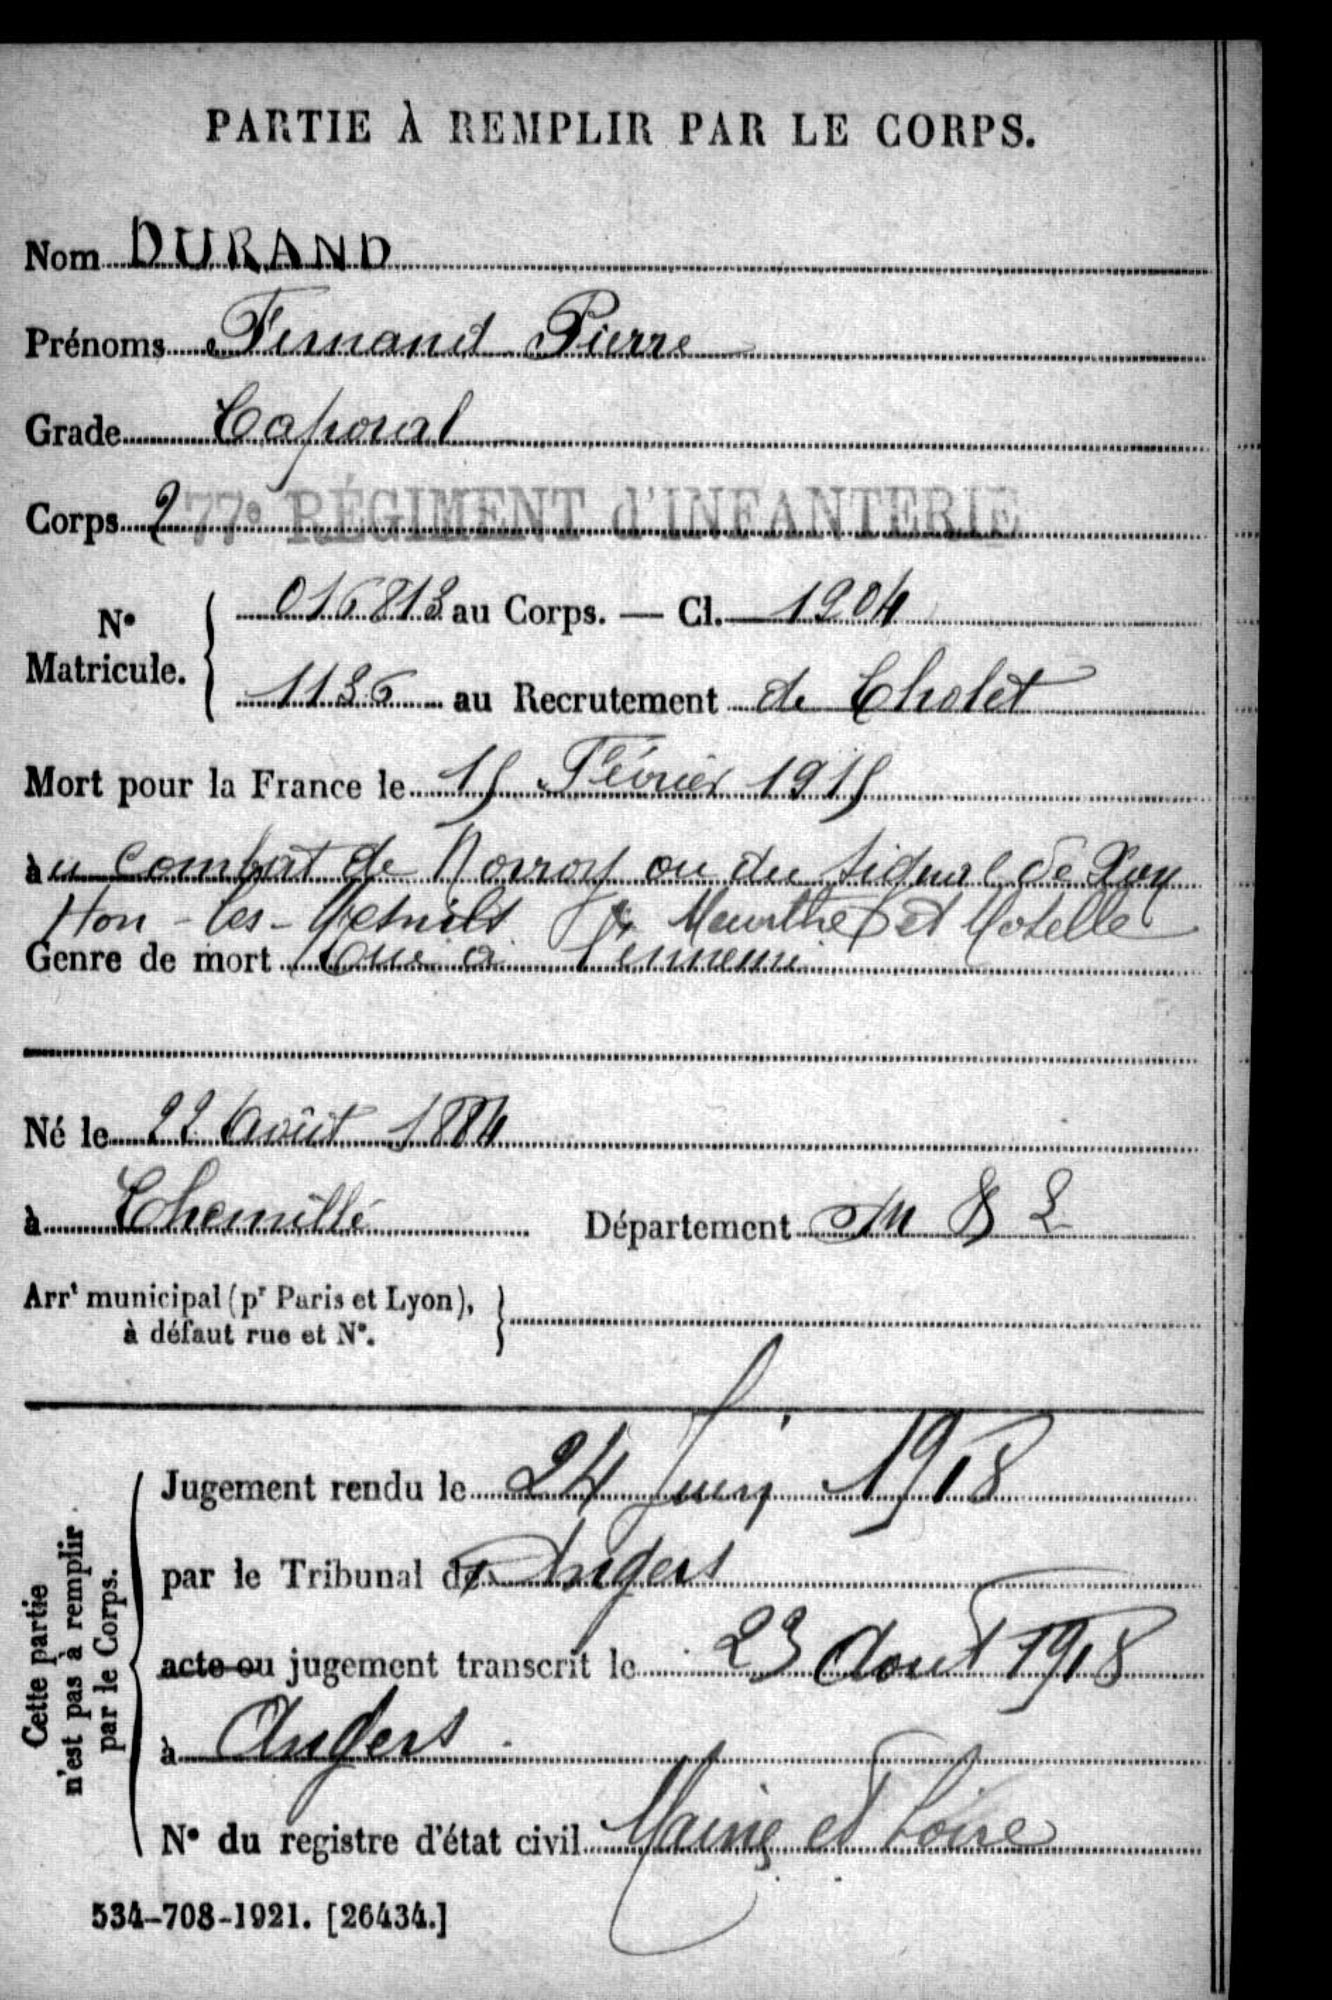 PARTIE À REMPLIR PAR LE CORPS.
Nom DURAND
Prénoms Fernand Pierre
Grade Caporal
Corps 277e RÉGIMENT d'INFANTERIE
N° Matricule. 016813 au Corps. — Cl. 1904
1136 au Recrutement de Cholet
Mort pour la France le 15 Février 1915
au combat de Norroy ou du signal de Xon
Hon-les-Mesnils Meurthe et Moselle
Genre de mort Tué à l'ennemi
Né le 22 Août 1884
à Chemillé Département M & L
Arrt municipal (pr Paris et Lyon),
à défaut rue et N°.
Cette partie
n'est pas à remplir
par le Corps.
Jugement rendu le 24 Juin 1918
par le Tribunal de Angers
acte ou jugement transcrit le 23 Aout 1918
à Angers
N° du registre d'état civil Maine et Loire
534-708-1921. [26434.]